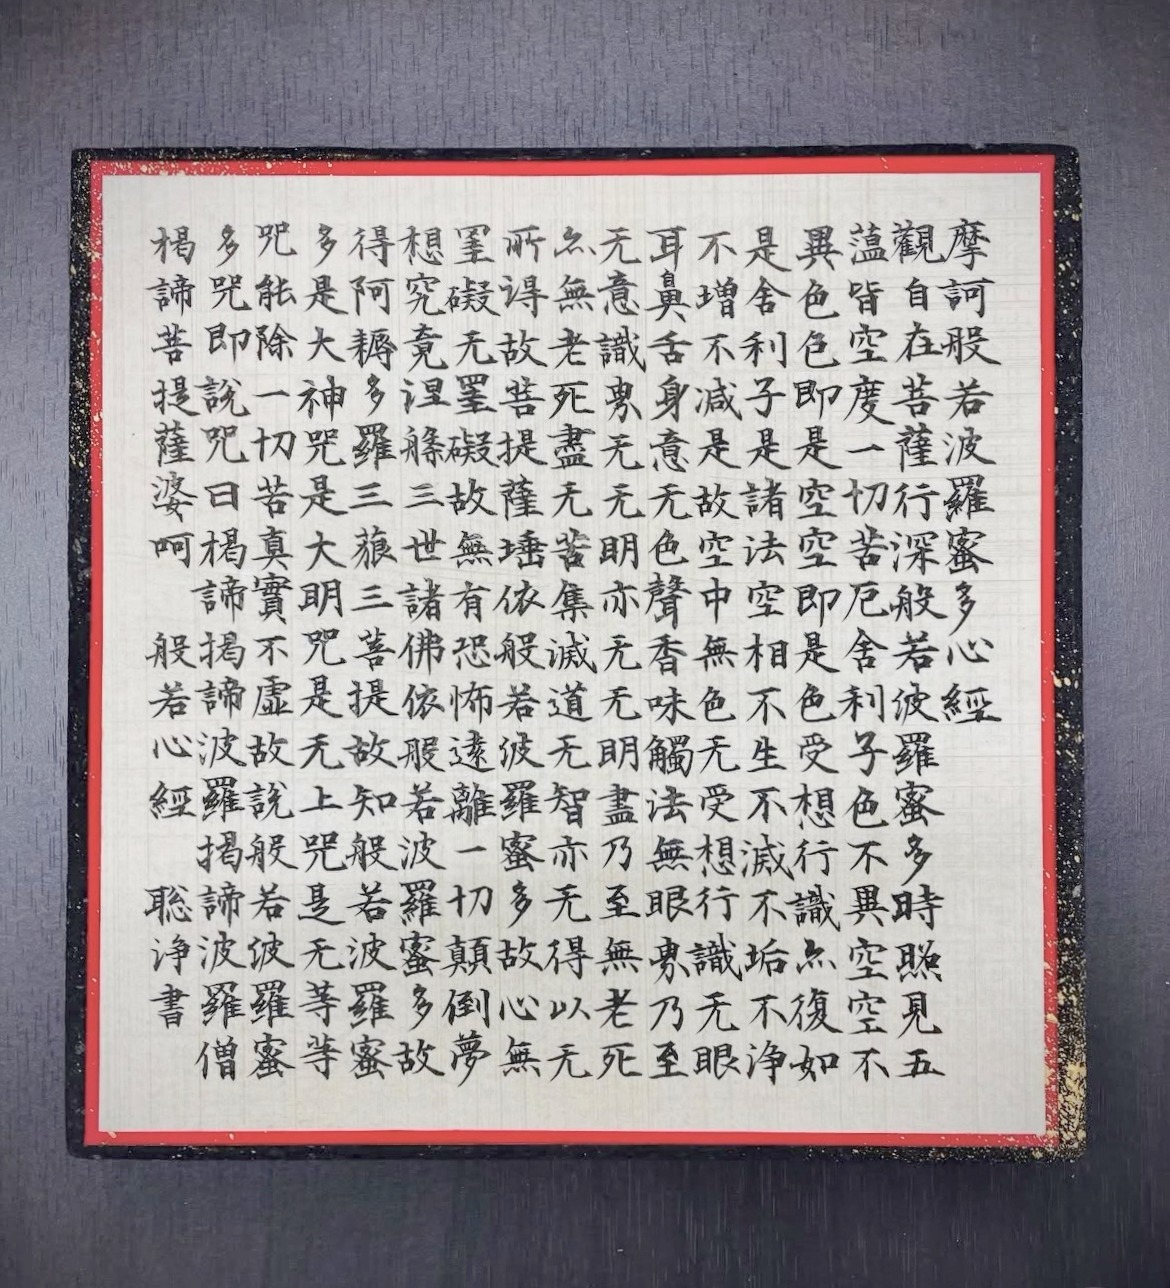 摩訶般若波羅蜜多心經
觀自在菩薩行深般若波羅蜜多時照見五
薀皆空度一切苦厄舍利子色不異空空不
異色色即是空空即是色受想行識亦復如
是舍利子是諸法空相不生不滅不垢不浄
不增不減是故空中無色无受想行識无眼
耳鼻舌身意无色聲香味觸法無眼界乃至
无意識界无无明亦无无明盡乃至無老死
亦無老死盡无苦集滅道无智亦无得以无
所得故菩提薩埵依般若波羅蜜多故心無
罣礙无罣礙故無有恐怖遠離一切顛倒夢
想究竟涅槃三世諸佛依般若波羅蜜多故
得阿耨多羅三藐三菩提故知般若波羅蜜
多是大神咒是大明咒是无上咒是无等等
咒能除一切苦真實不虛故說般若波羅蜜
多咒即說咒曰揭諦揭諦波羅揭諦波羅僧
揭諦菩提薩婆呵 般若心經 聡浄書